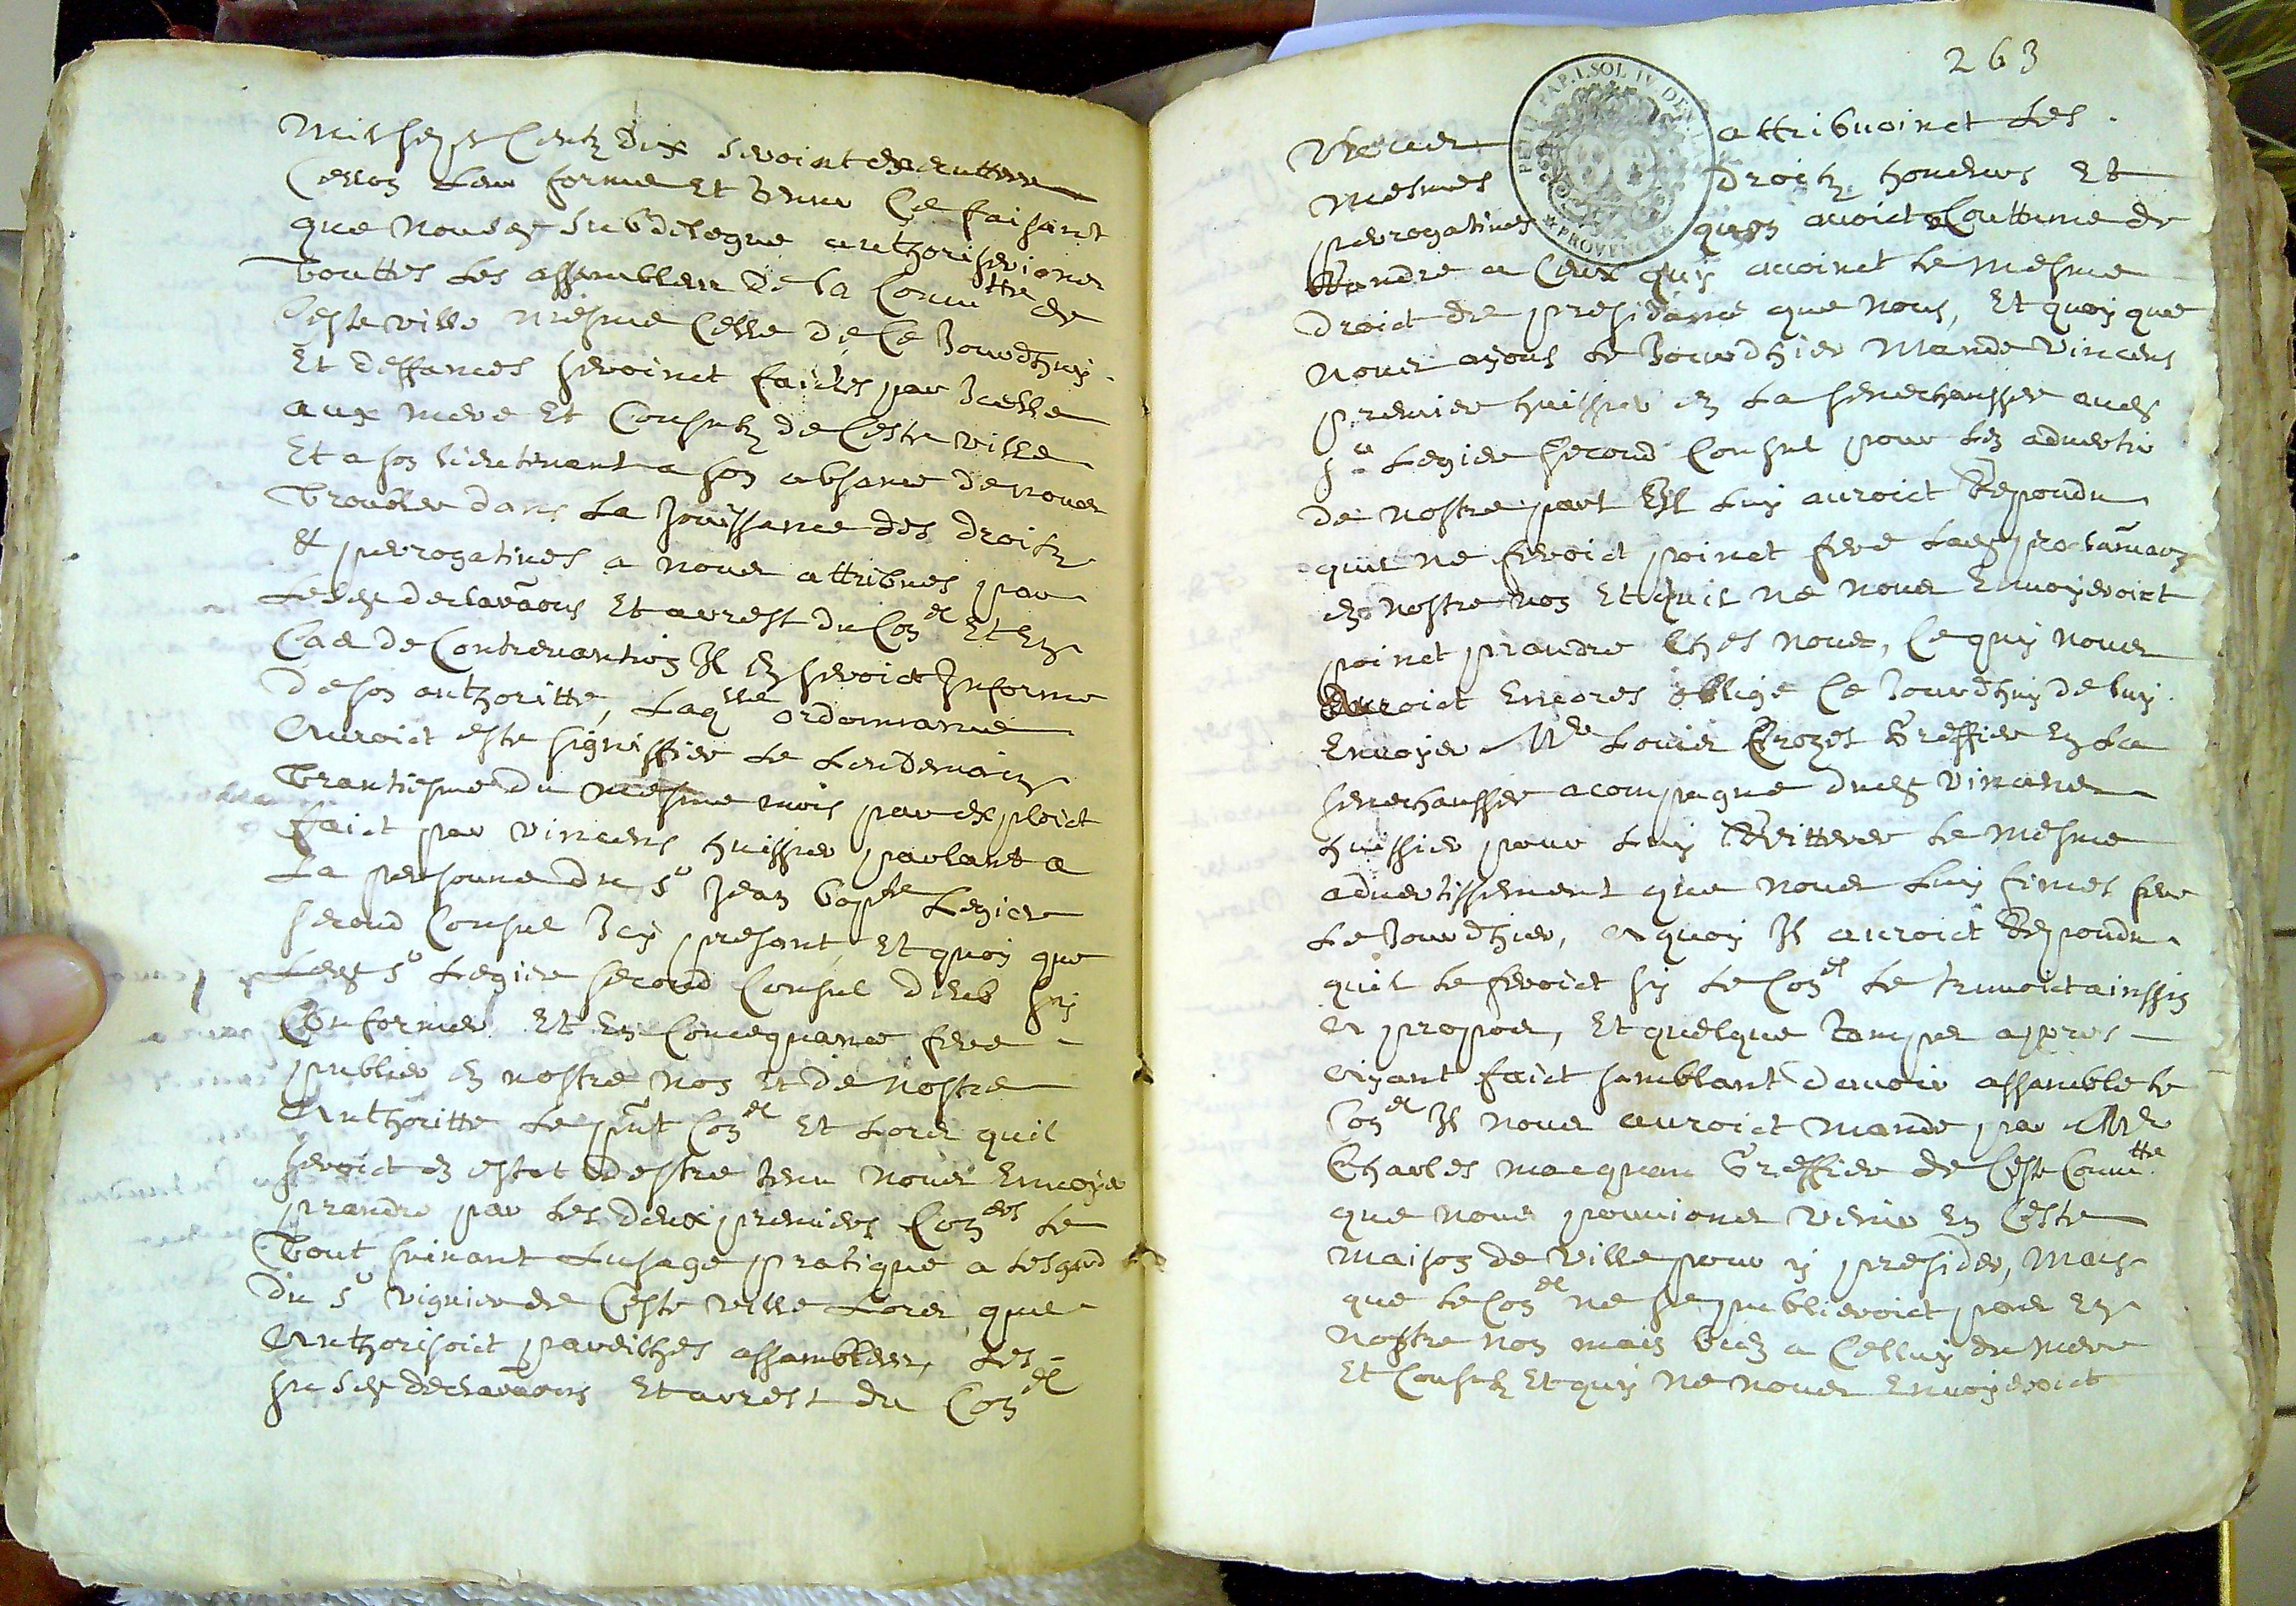 Mil sept Centz dix seroint executtees
Cellon Leur forme Et teneur Ce faisant
que nousd subdelegue authoriserions
touttes Les assemblees De La Commtte de
Ceste ville mesme Celle de Ce Jourdhuy
Et deffances seroinct faictes par Icelle
aux mere Et Consulz de Ceste ville
Et a son lieutenant a son absance de nous
troubler dans La Jouissance des droitz
& perrogatives a nous attribues par
Lesd declaraons Et arrest du Conel Et En
Cas de Contrevantion Il En seroict Informe
de son authoritte, Laqlle ordonnance
auroict este signiffiee Le Lendemain
trantiesme du mesme mois par exploict
faict par vincens huissier parlant a
La personne du Sr Jean bapte Legier
second Consul Icy presant, Et quoy que
Led Sr Legier second Consul deub sy
Conformer Et En Concequance fere
publier En nostre non Et de nostre
Authoritte Le pnt Conel Et Lors quil
seroict En estat destre tenu nous Envoyer
prandre par Les deux premiers Coners Le
tout suivant Lusage pratique a Lesgard
du Sr viguier de Ceste ville Lors que
Authorisoit pareilhes assamblees, Les
susd declaraons Et arrest du Conel
263
PETIT PAP. I. SOL IV. DEN.
PROVENCE
attribuoinct Les
mesmes droitz honeurs Et
perrogatives quon avoict Couttume de
Randre a Ceux quy avoinct Le mesme
droict de presidance que nous, Et quoy que
nous ayons Le Jourdhier Mande Vincens
premier huissier En La senechaussee aud
Sr Legier second Consul pour Len advertir
de nostre part Il Luy auroict Repondu
quil ne feroict poinct fere Lad proclamaon
En nostre non Et quil ne nous Envoyeroict
poinct prandre Ches nous, Ce quy nous
auroict Encores oblige Ce Jourdhuy de luy
Envoyer Mre Louis Crozet Greffier En La
senechaussee acompagne dud vincens
huissier pour Luy Reitterer Le mesme
advertissement que nous Luy fimes fere
Le Jourdhier, A quoy Il auroict Repondu
quil Le feroict sy Le Conel Le truvoict ainssin
A propos, Et quelque temps apres
Ayant faict samblant davoir assamble Le
Conel Il nous auroict mande par Mre
Charles macquan Greffier de Ceste Commtte
que nous pouvions venir En Ceste
maison de Ville pour y presider, mais
que Le Conel ne se publieroict pas En
nostre non mais bien a Celluy du mere
Et Consulz Et quy ne nous Envoyeroict